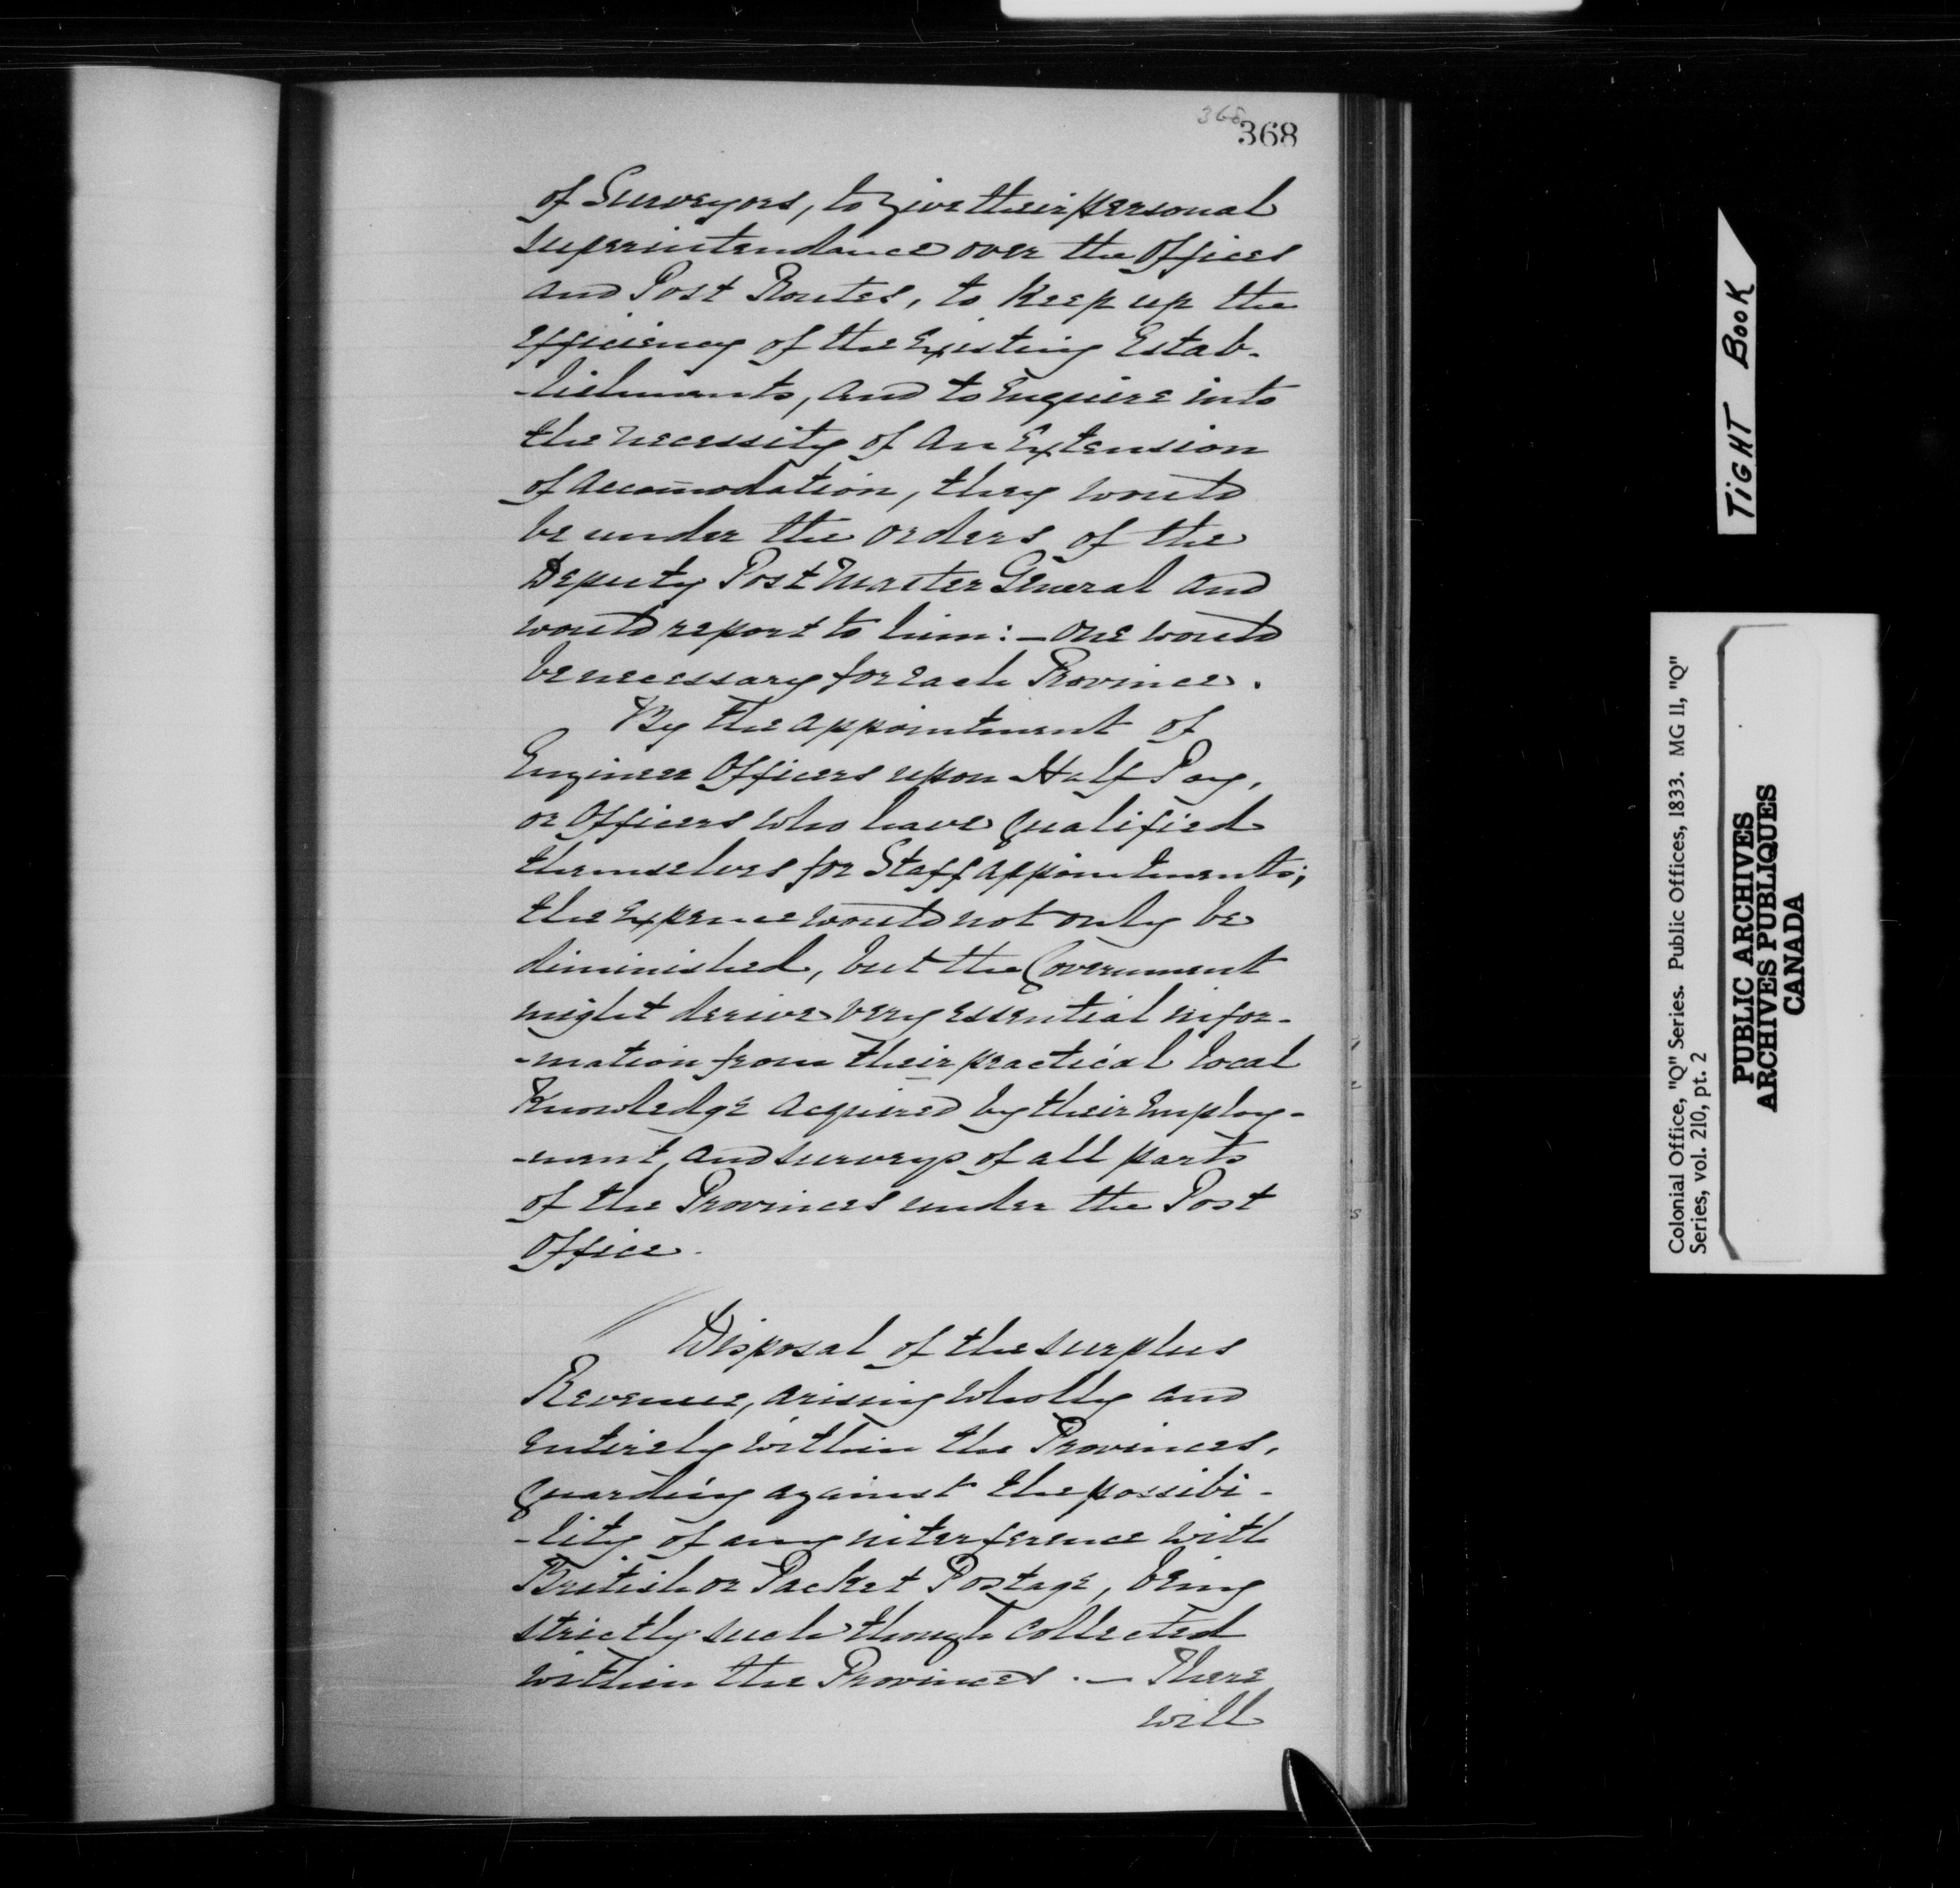 368
368
of Surveyors, to give their personal
superintendance over the Offices
and Post Routes, to keep up the
efficiency of the Existing Estab-
-lishments, and to Enquire into
the necessity of an Extension
of accomodation, they would
be under the orders of the
Deputy Post Master General and
would report to him: — One would
be necessary for each Province.
By the appointment of
Engineer Officers upon Half Pay,
or Officers who have qualified
themselves for Staff appointments;
the Expence would not only be
diminished, but the Government
might derive very essential infor-
-mation from their practical local
Knowledge acquired by their Employ-
-ment, and surveys of all parts
of the Provinces under the Post
Office.
Disposal of the surplus
Revenue, arising wholly and
entirely within the Provinces,
guarding against the possibi-
-lity of any interference with
British or Packet Postage, being
strictly such though collected
within the Provinces. — There
will
TIGHT BOOK
Colonial Office, "Q" Series. Public Offices, 1833. MG 11, "Q"
Series, vol. 210, pt. 2
PUBLIC ARCHIVES
ARCHIVES PUBLIQUES
CANADA